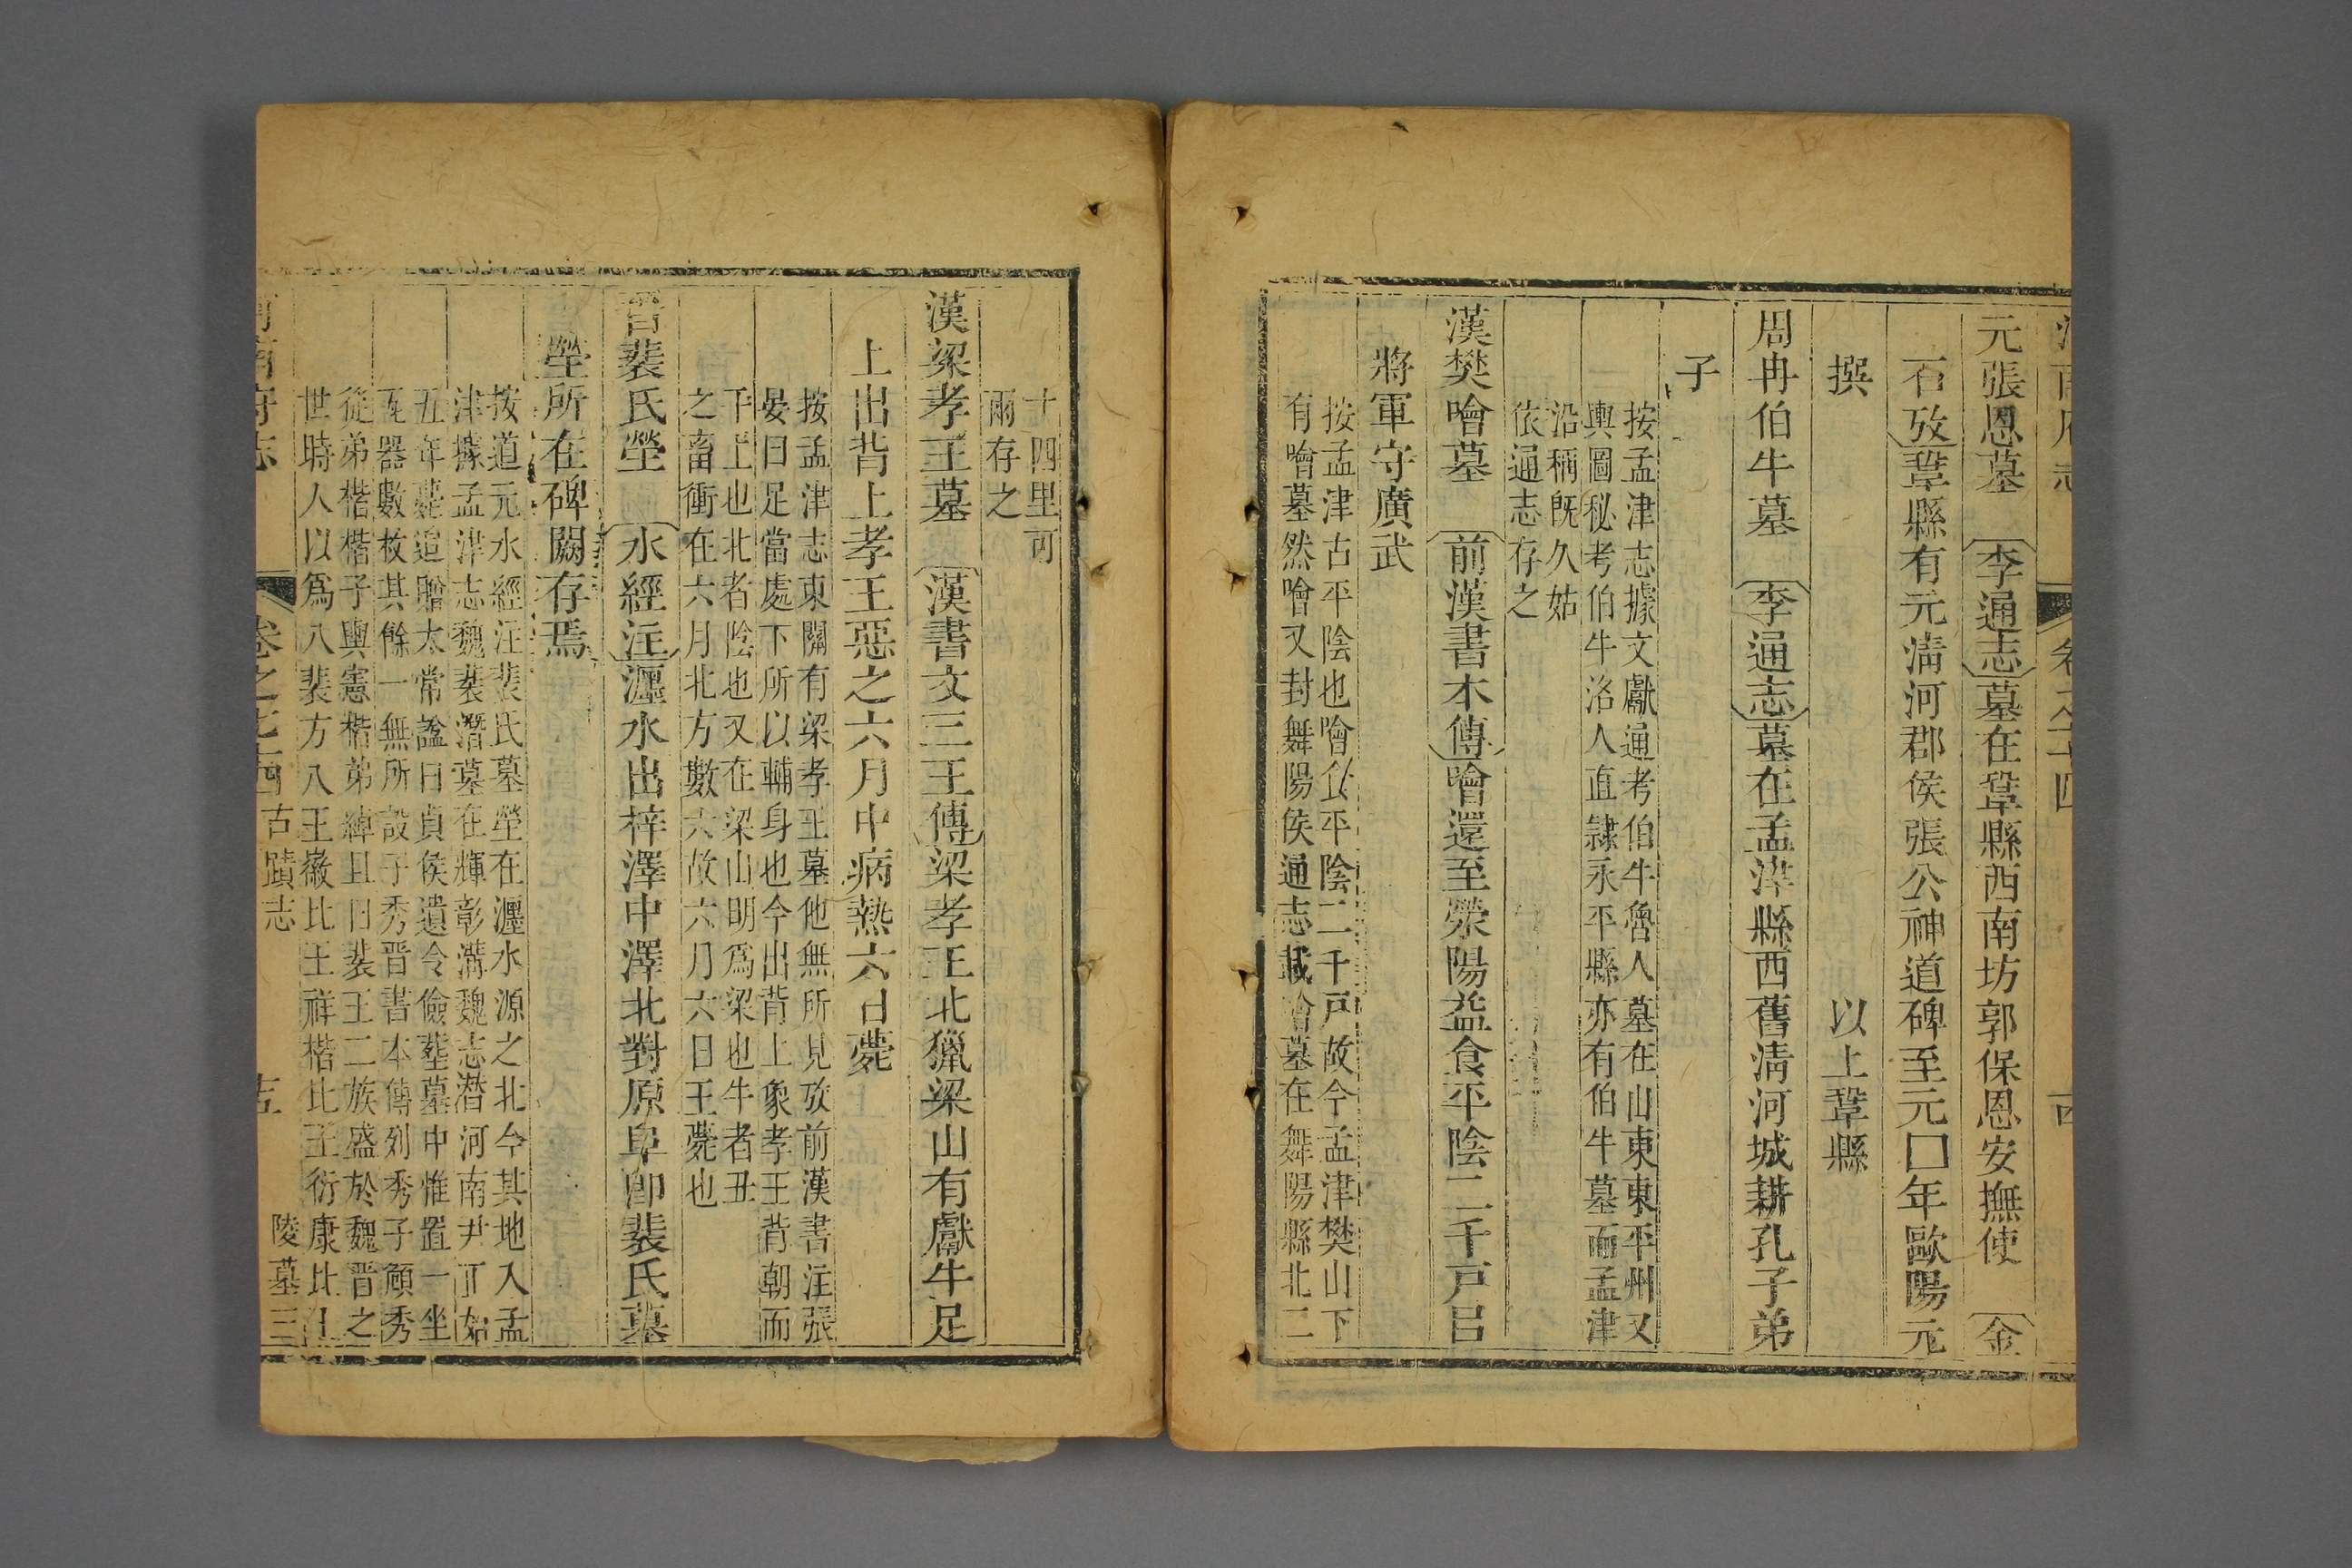 元張恩墓 李通志墓在鞏縣西南坊郭保恩安撫使 金
石攷鞏縣有元淸河郡侯張公神道碑至元口年歐陽元
撰 以上鞏縣
周冉伯牛墓 李通志墓在孟津縣西舊淸河城耕孔子弟
子
按孟津志據文獻通考伯牛魯人墓在山東東平州又
輿圖秘考伯牛洛人直隷永平縣亦有伯牛墓而孟津
沿稱旣久姑
依通志存之
漢樊噲墓 前漢書本傳噲還至滎陽益食平陰二千戸呂
將軍守廣武
按孟津古平陰也噲食平陰二千戸故今孟津樊山下
有噲墓然噲又封舞陽侯通志載噲墓在舞陽縣北二
十四里可
兩存之
漢梁孝王墓 漢書文三王傳梁孝王北獵梁山有獻牛足
上出背上孝王惡之六月中病熱六日薨
按孟津志東關有梁孝王墓他無所見攷前漢書注張
晏曰足當處下所以輔身也今出背上象孝王背朝而
干上也北者陰也又在梁山明爲梁也牛者丑
之畜衝在六月北方數六故六月六日王薨也
晉裴氏塋 水經注瀍水出梓澤中澤北對原阜卽裴氏墓
塋所在碑闕存焉
按道元水經注裴氏墓塋在瀍水源之北今其地入孟
津據孟津志魏裴潛墓在輝彰溝魏志潛河南尹正始
五年薨追贈太常諡曰貞侯遺令儉葬墓中惟置一坐
瓦器數枚其餘一無所設子秀晉書本傳列秀子頠秀
從弟楷楷子輿憲楷弟綽且曰裴王二族盛於魏晉之
世時人以爲八裴方八王徽比王祥楷比王衍康比王
河南府志 卷之七四 古蹟志 陵墓三